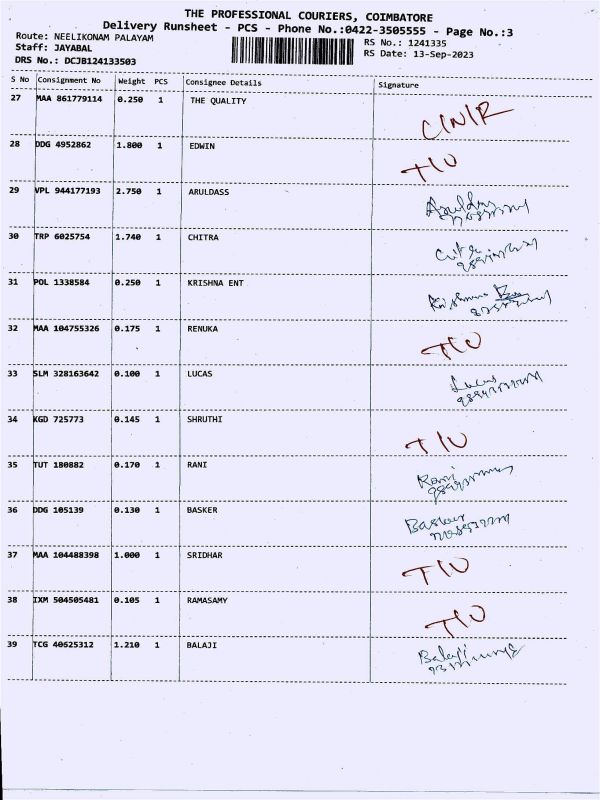 THE PROFESSIONAL COURIERS, COIMBATORE
Delivery Runsheet - PCS - Phone No.:0422-3505555 - Page No.:3
Route: NEELIKONAM PALAYAM RS No.: 1241335
Staff: JAYABAL RS Date: 13-Sep-2023
DRS No.: DCJB124133503
S No Consignment No Weight PCS Consignee Details Signature
27 MAA 861779114 0.250 1 THE QUALITY C/N/R
28 DDG 4952862 1.800 1 EDWIN T/U
29 VPL 944177193 2.750 1 ARULDASS
30 TRP 6025754 1.740 1 CHITRA
31 POL 1338584 0.250 1 KRISHNA ENT
32 MAA 104755326 0.175 1 RENUKA T/U
33 SLM 328163642 0.100 1 LUCAS Lucas
34 KGD 725773 0.145 1 SHRUTHI T/U
35 TUT 180882 0.170 1 RANI Rani
36 DDG 105139 0.130 1 BASKER
37 MAA 104488398 1.000 1 SRIDHAR T/U
38 IXM 504505481 0.105 1 RAMASAMY T/U
39 TCG 40625312 1.210 1 BALAJI Balaji